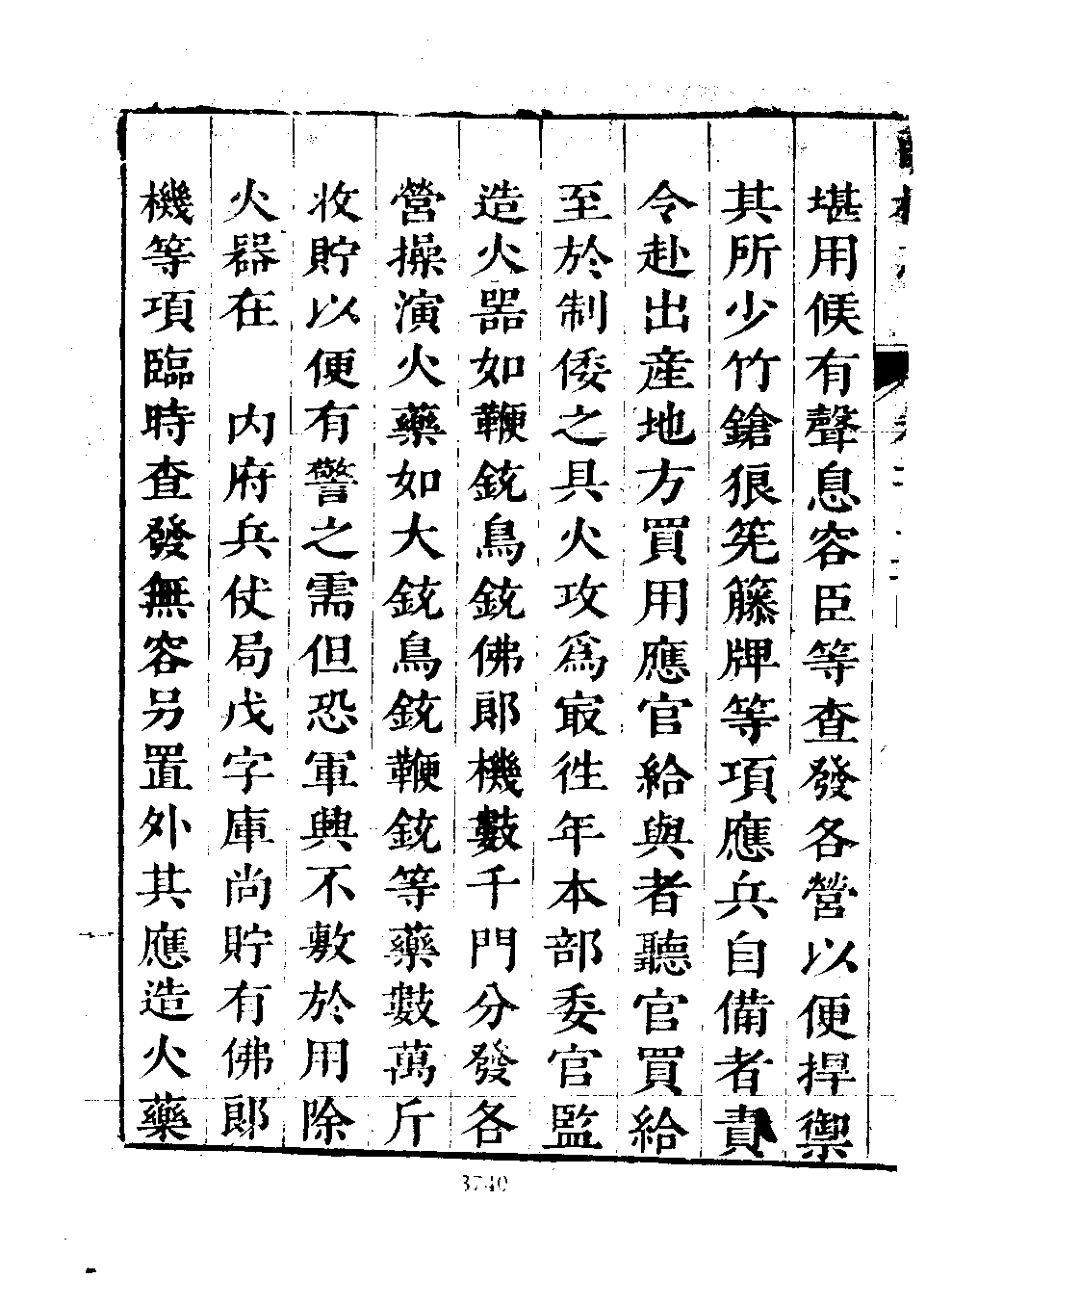 堪用候有聲息容臣等查發各營以便捍禦
其所少竹鎗狼筅籐牌等項應兵自備者責
令赴出産地方買用應官給與者聽官買給
至於制倭之具火攻爲㝡徃年本部委官監
造火噐如鞭銃鳥銃佛郎機數千門分發各
營操演火藥如大銃鳥銃鞭銃等藥數萬斤
收貯以便有警之需但恐軍興不敷於用除
火器在　內府兵仗局戊字庫尚貯有佛郎
機等項臨時查發無容另置外其應造火藥
3740